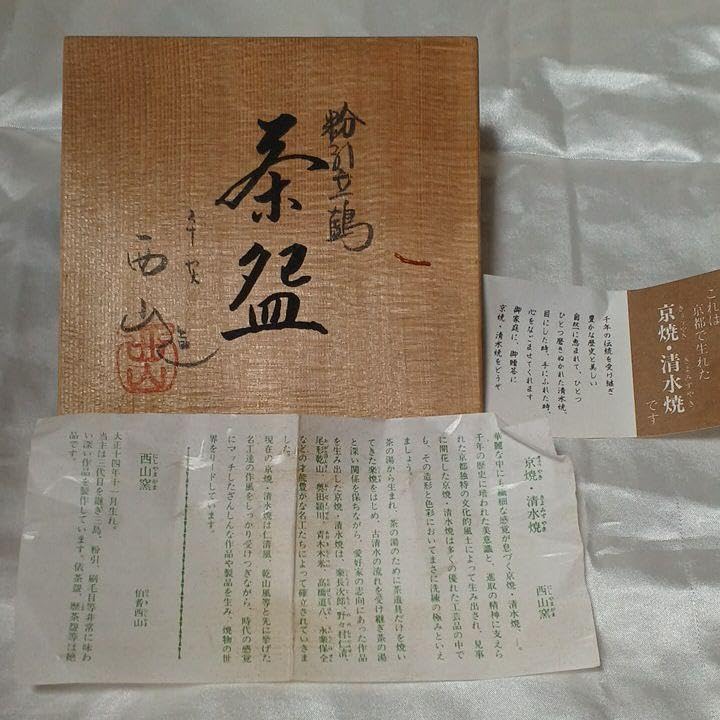 粉引立鶴
茶盌
平安
西山造
これは
京都で生れた
京焼・清水焼
きょうやき
きよみずやき
です
千年の伝統を受け継ぎ
豊かな歴史と美しい
自然に恵まれて、ひとつ
ひとつ磨きぬかれた清水焼、
目にした時、手にふれた時、
心をなごませてくれます
御家庭に、御贈答に
京焼・清水焼をどうぞ
京焼・清水焼
西山窯
華麗な中にも繊細な感覚が息づく京焼・清水焼…。
千年の歴史に培われた美意識と、進取の精神に支えら
れた京都独特の文化的風土によって生み出され、見事
に開花した京焼・清水焼は多くの優れた工芸品の中で
も、その造形と色彩においてまさに洗練の極みといえ
ましょう。
茶の湯から生まれ、茶の湯のために茶道具だけを焼い
てきた楽焼をはじめ、古清水の流れを受け継ぎ茶の湯
と深い関係を保ちながら、愛好家の志向にあった作品
を生み出した京焼・清水焼は、楽長次郎、野々村仁清、
尾形乾山、奥田頴川、青木木米、高橋道八、永楽保全
などの才能豊かな名工たちによって確立されていきま
した。
現在の京焼・清水焼は仁清風、乾山風等と先に挙げた
名工達の作風をしっかり受けつぎながら、時代の感覚
にマッチしたざんしんな作品や製品を生み、焼物の世
界をリードしています。
西山窯
にしやまかま
伯耆西山
大正十四年十一月生れ。
当主は三代目を継ぎ三島、粉引、刷毛目等非常に味わ
い深い作品を製作しています。俵茶盌、暦茶盌等は絶
品です。